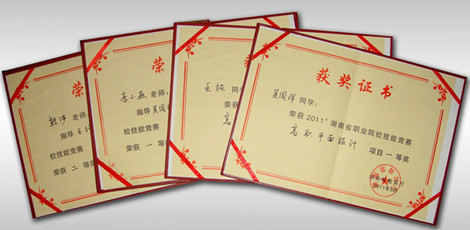 荣
老师:
指导
校技能竞赛
荣获 二 等奖
荣
李小燕 老师:
指导 吴国
校技能竞赛
荣获 一 等
王
同
荣获
高
获奖证书
吴国洋 同学:
荣获 2011°湖南省职业院校技能竞赛
高职平面设计
项目一等奖